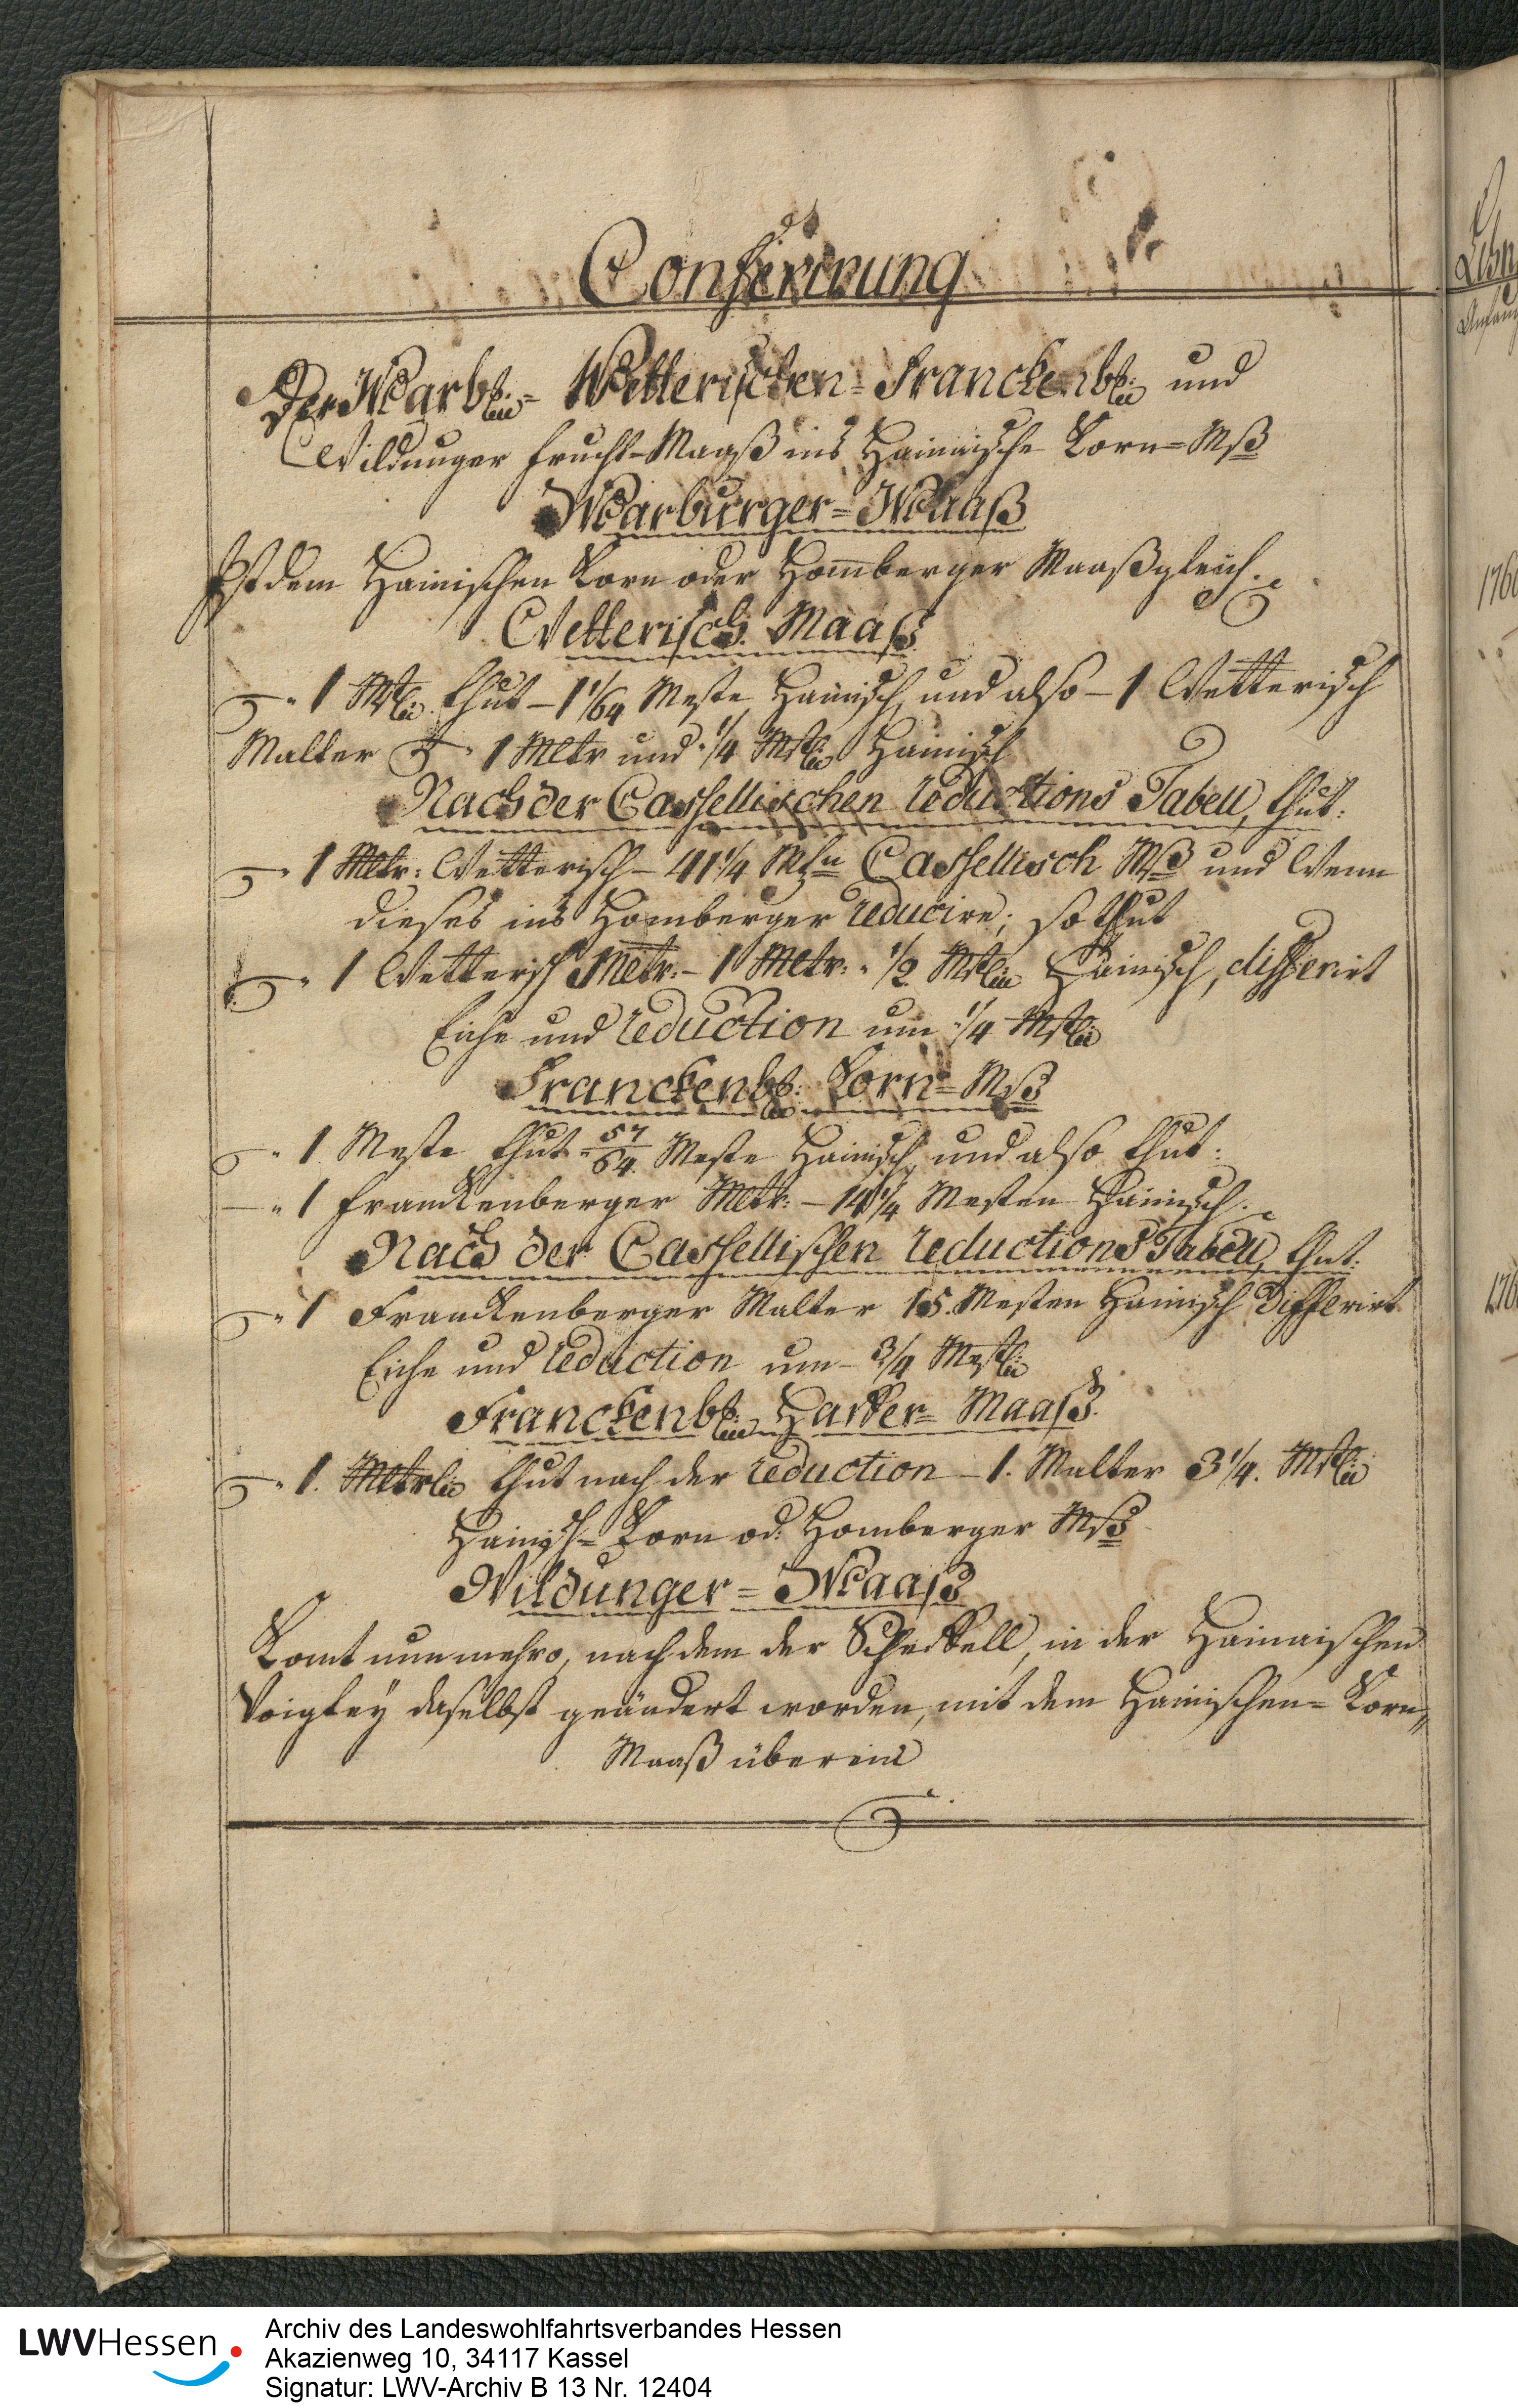 Conferirung
Der Marb: Wetterischen- Franckenb: und
Wildunger Frucht-Maaß ins Hainaische Korn-Mß
Marburger-Maaß
Ist dem Hainischen Korn oder Homberger Maaß gleich.
Wetterisch Maaß
1 Mst: thut - 1 1/64 Meste Hainisch, und also - 1 Wetterisch
Malter 1 Mltr und 1/4 Mst: Hainisch
Nach der Cassellischen reductions Tabell, thut:
1 Mltr: Wetterisch - 41 1/4 Mtzn Cassellisch Mß und Wenn
dieses ins Homberger reducire, so thut
1 Wetterisch Mltr: - 1 Mltr: 1/2 Mst: Hainisch, differirt
Eiche und reduction um 1/4 Mst:
Franckenb: Korn-Mß
1 Meste thut 57/64 Meste Hainisch, und also thut:
1 Franckenberger Mltr: - 14 1/4 Mesten Hainisch.
Nach der Cassellischen reductions Tabell, thut:
1 Franckenberger Malter 15. Mesten Hainisch Differirt
Eiche und reduction um - 3/4 Mest:
Franckenb: Hafer- Maaß.
1. Mltr thut nach der reduction - 1. Malter 3 1/4. Mst:
Hainisch- Korn od: Homberger Mß
Wildunger- Maaß
Komt nunmehro, nach dem der Scheffell, in der Hainaischen
Voigtey daselbst geändert worden, mit dem Hainischen- Korn,,
Maaß überein
176
176
LWVHessen
Archiv des Landeswohlfahrtsverbandes Hessen
Akazienweg 10, 34117 Kassel
Signatur: LWV-Archiv B 13 Nr. 12404